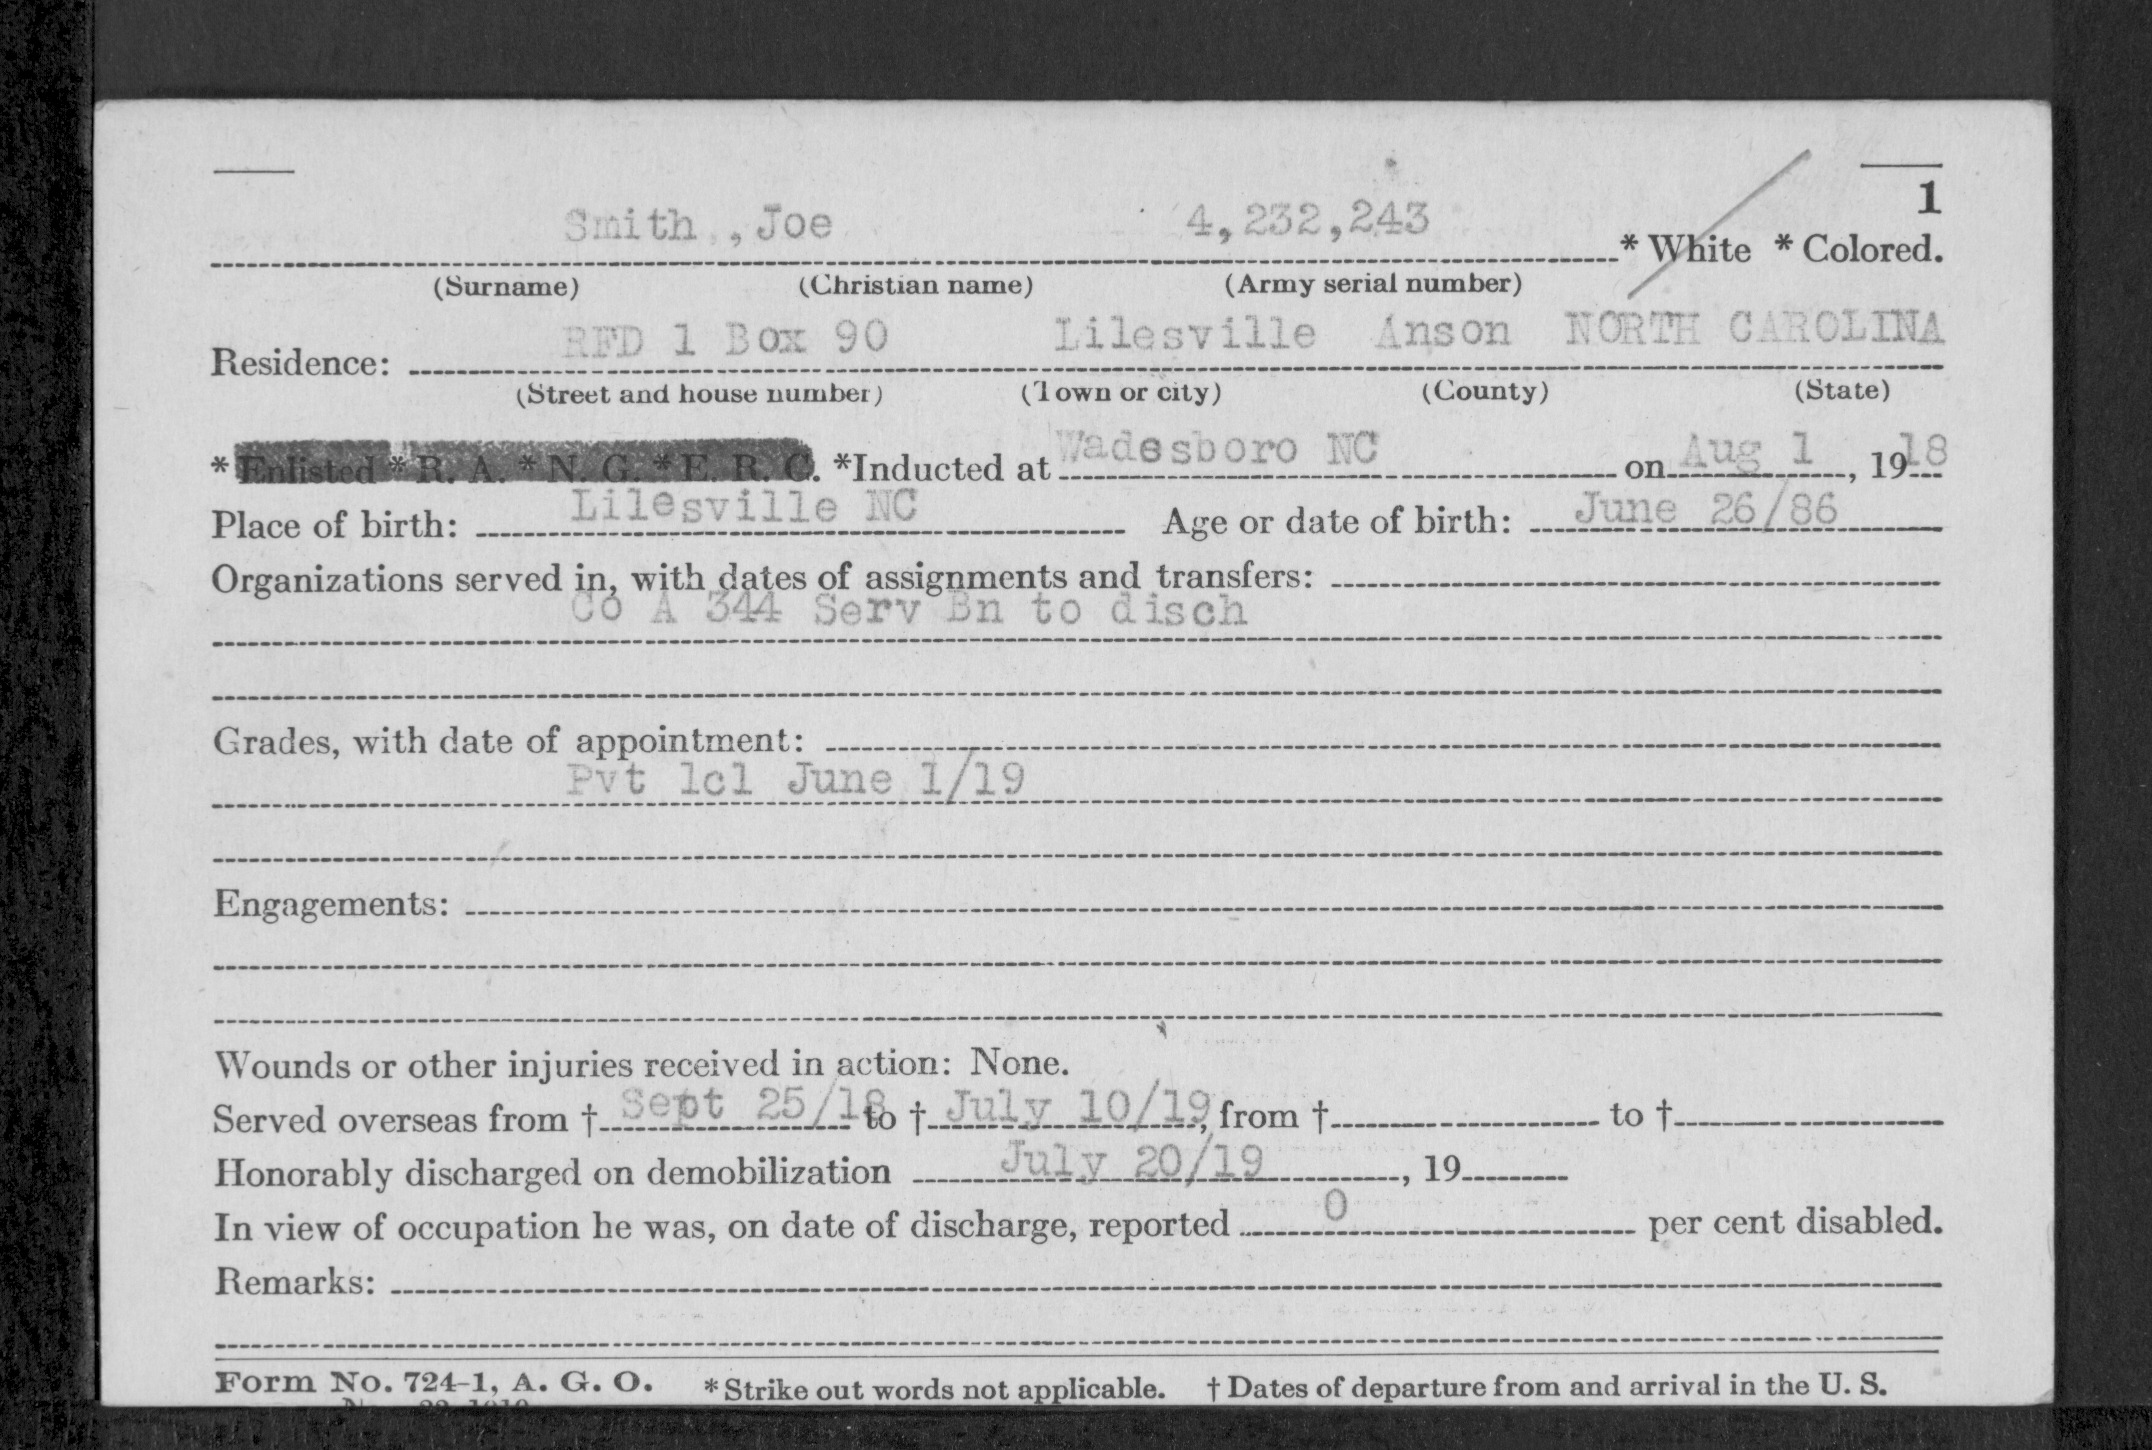 1
Smith , Joe 4,232,243 * White * Colored.
(Surname) (Christian name) (Army serial number)
RFD 1 Box 90 Lilesville Anson NORTH CAROLINA
Residence:
(Street and house number) (Town or city) (County) (State)
* Enlisted * R. A. * N. G. * E. R. C. *Inducted at Wadesboro NC on Aug 1, 1918
Place of birth: Lilesville NC Age or date of birth: June 26/86
Organizations served in, with dates of assignments and transfers:
Co A 344 Serv Bn to disch
Grades, with date of appointment:
Pvt 1cl June 1/19
Engagements:
Wounds or other injuries received in action: None.
Served overseas from † Sept 25/18 to † July 10/19, from † to †
Honorably discharged on demobilization July 20/19, 19
In view of occupation he was, on date of discharge, reported 0 per cent disabled.
Remarks:
Form No. 724-1, A. G. O. * Strike out words not applicable. † Dates of departure from and arrival in the U. S.